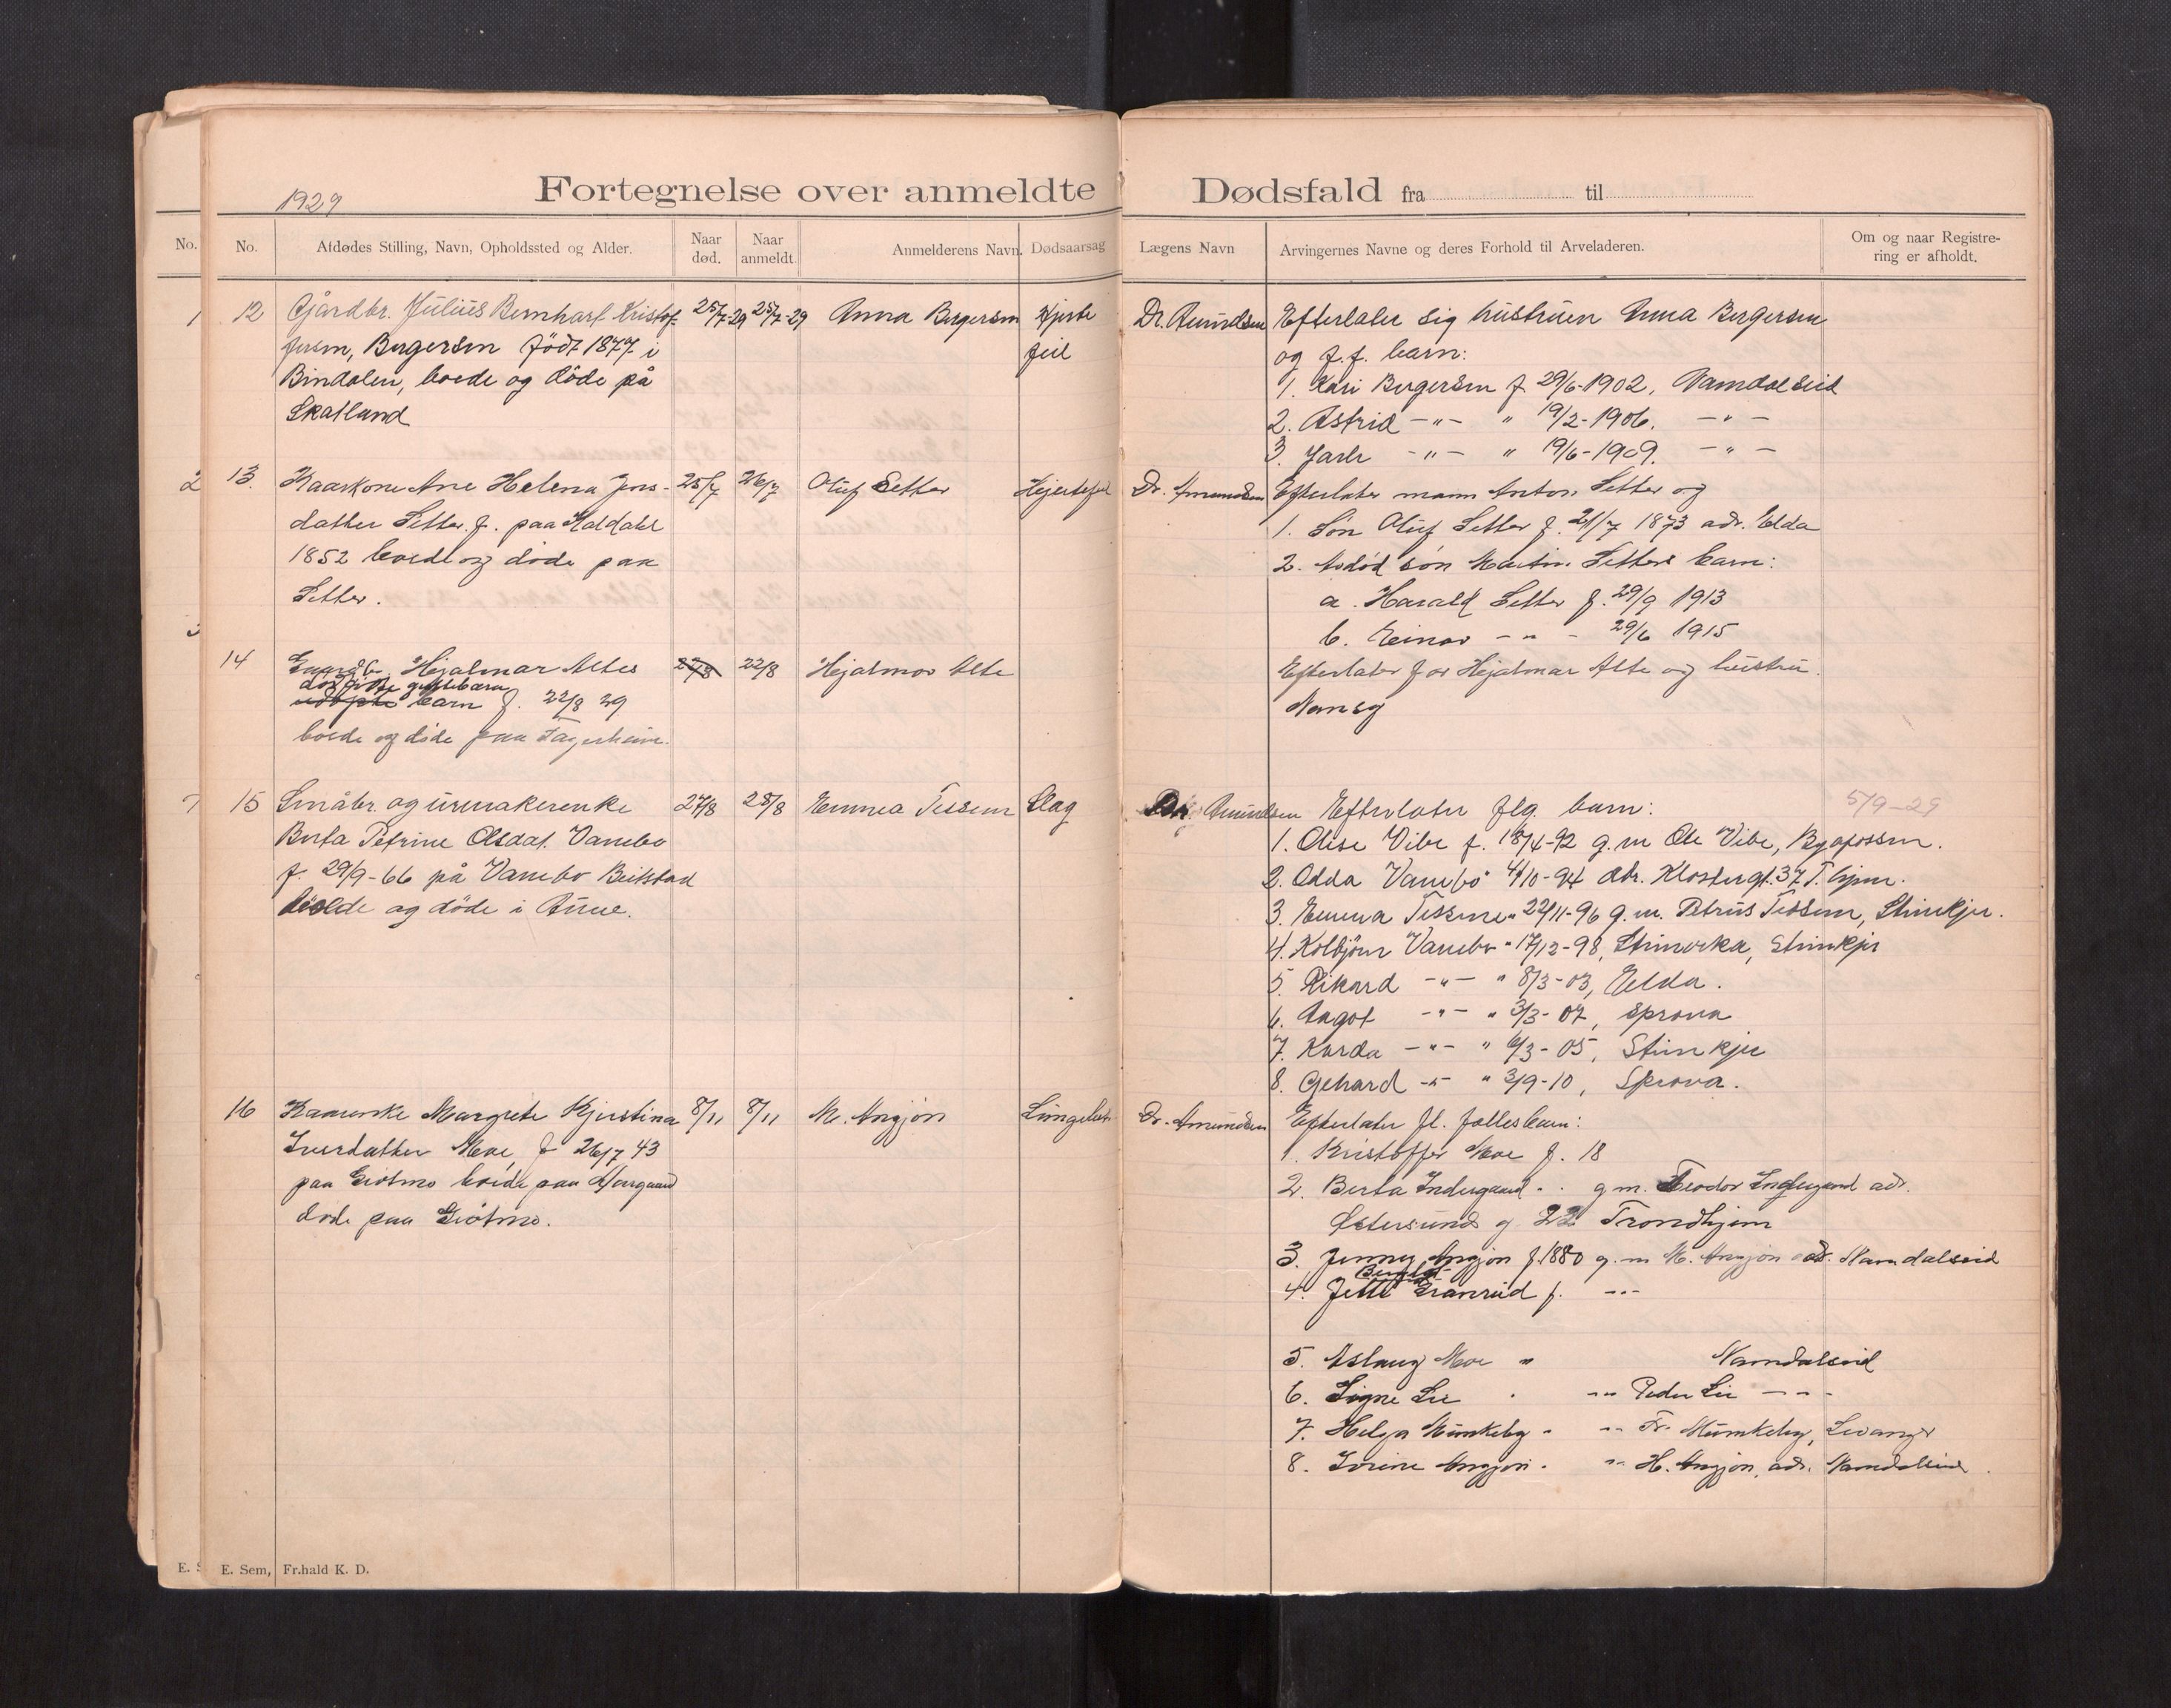 1929
Fortegnelse over anmeldte Dødsfald fra til
No.
No.
Afdødes Stilling, Navn, Opholdssted og Alder.
Naar død.
Naar anmeldt.
Anmelderens Navn.
Dødsaarsag
Lægens Navn
Arvingernes Navne og deres Forhold til Arveladeren.
Om og naar Registrering er afholdt.
1
12 Gårdbr. Julius Bernhart Kristof- 25/7-29 25/7-29 Anna Bergersen Hjerte Dr. Amundsen Efterlater sig hustruen Anna Bergersen
fersen, Bergersen født 1877 i feil og f.f. barn:
Bindalen, boede og døde på 1. Kari Bergersen f. 29/6-1902, Namdalseid
Skatland 2. Astrid -"- " 19/2-1906. -"-
3. Jarle -"- " 19/6-1909. -"-
2
13. Kaarkone Ane Helena Jens- 25/7 26/7 Oluf Setter Hjertefeil Dr. Amundsen Efterlater mann Anton Setter og
datter Setter f. paa Kaldahl 1. Søn Oluf Setter f. 21/7 1873 adr. Elda
1852 boede og døde paa 2. Avdød søn Martin Setters barn:
Setter. a. Harald Setter f. 29/9 1913
b. Einar -"- 29/6 1915
14 Hjalmar Altes 27/8 22/8 Hjalmar Alte Efterlater far Hjalmar Alte og hustru
barn f. 22/8 29
boede og døde paa Fagerheim.
15 Småbr. og urmakerenke 27/8 28/8 Emma Tessem Slag Dr. Amundsen Efterlater flg. barn: 5/9-29
Berta Petrine Olsdat. Vanebo 1. Olise Vibe f. 18/4-92 g.m Ole Vibe, Byafossen.
f. 29/9-66 på Vanebo Beitstad 2. Odda Vanebo " 4/10-94 adr. Klostergt. 37 T.hjem.
og døde i Aune. 3. Emma Tessem " 22/11-96 g.m. Petrus Tessem, Stenkjer.
4. Kolbjørn Vanebo " 17/12-98, Stenkjer
5. Rikard -"- " 8/3-03, Elda.
6. Aagot -"- " 3/3-07, Sprova
7. Karda -"- " 6/3-05, Stenkjer
8. Gerhard -"- " 3/9-10, Sprova.
16 Kaarenke Margrete Kjerstina 8/11 8/11 M. Angjon Dr. Amundsen Efterlater fl. fellesbarn:
Iversdatter Moe, f 26/7 43 1. Kristoffer Moe f. 18
paa Grøtmo boede paa 2. Berta Indergaard g m. adr.
døde paa Grøtmo. Østersunds g. 22 Trondhjem
3. Jenny Angjon f. 1880 g.m M. Angjon adr. Namdalseid
4. Jette Granrud f. -"-
5. Aslaug Moe " Namdalseid
6. Signe Lie -"- Peder Lie -"-
7. Helga Munkeby " -"- Fr. Munkeby, Levanger
8. Angjon. -"- H. Angjon, adr. Namdalseid.
E. Sem, Fr.hald K. D.